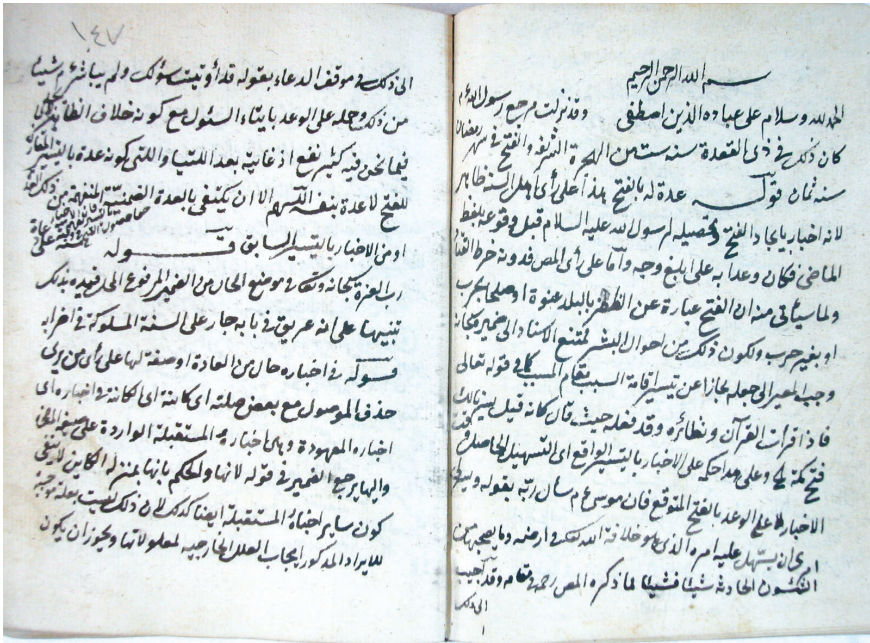 بسم الله الرحمن الرحيم
الحمد لله وسلام على عباده الذين اصطفى وقد نزلت مرجع رسول الله
كان ذلك في ذى القعدة سنة ست من الهجرة الشريفة والفتح في شهر رمضان
سنة ثمان قوله عدة له بالفتح هذا على رأى اهل السنة ظاهر
لانه اخبار بايجاد الفتح وتحصيله لرسول الله عليه السلام قبل وقوعه بلفظ
الماضى فكان وعدا به على ابلغ وجه واما على رأى المص فدونه خرط القتاد
ولما سيأتى منه ان الفتح عبارة عن الظفر بالبلد عنوة او صلحا بحرب
او بغير حرب ولكون ذلك من احوال البشر يمتنع اسناده الى ضميره سبحانه
وجب المصير الى جعله مجازا عن تيسيره اقامة السبب مقام المسبب كما في قوله تعالى
فاذا قرأت القرآن ونظائره وقد فعله حيث قال كانه قيل يسرنا لك
فتح مكة وعلى هذا حكمه على الاخبار بالتيسير الواقع اى التسهيل الحاصل
الاخبار على الوعد بالفتح المتوقع فان موسى ع م سأل ربه بقوله ويسر لى
امرى ان يسهل عليه امره الذى هو خلافة الله في ارضه وما يصحبها من
الشئون الحادثة شيئا فشيئا لما ذكره المص رحمه في مقامه وقد اجيب
الى ذلك
١٤٧
الى ذلك في موقف الدعاء بقوله قد أوتيت سؤلك ولم يباشر م شيئا
من ذلك وحمله على الوعد بايتاء السئول مع كونه خلاف الظاهر
فيما نحن فيه كثير نفع اذ غايته بعد اللتيا واللتى كونه عدة بالتيسير
للفتح لا عدة بنفسه اللهم الا ان يكتفى بالعدة الضمنية المنفهمة من
او من الاخبار بالتيسير السابق قوله
رب العزة سبحانه في موضع الحال من الضمير المرفوع الى قيده بذلك
تنبيها على انه عريق في بابه جار على السنة المسلوكة في اضرابه
قوله في اخباره حال من العادة او صفة لها على رأى من يرى
حذف الموصول مع بعض صلته اى كائنة اى الكائنة في اخباره اى
اخباره المعهودة وهى اخباره المستقبلة الواردة على صيغة الماضى
واليها يرجع الضمير في قوله لانها والحكم بانها بمنزلة الكائن لا يقتضى
كون ساير اخباره المستقبلة ايضا كذلك لان ذلك ليست بعلة موجبة
للايراد المذكور ايجاب العلل الخارجية لمعلولاتها ويجوز ان يكون